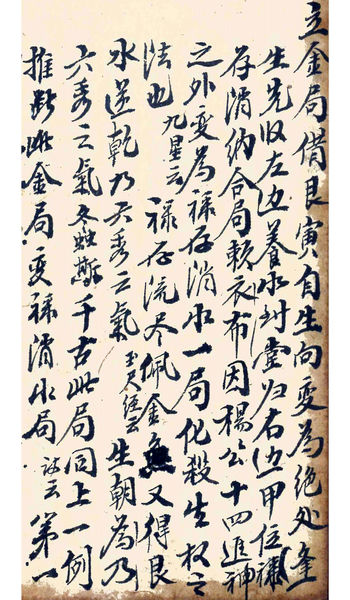 立金局借艮寅自生向变為絕处逢
生先收左边養水到堂归右边甲位祿
存消納合局軟衣布因楊公十四進神
之外变為祿存消水一局化殺生权之
法也九星云祿存流尽佩金魚又得艮
水送乾乃天秀之氣玉尺經云生朝為乃
六秀之氣冬蛀斯千古此局同上一例
推斷此金局变祿消水局訣云第一